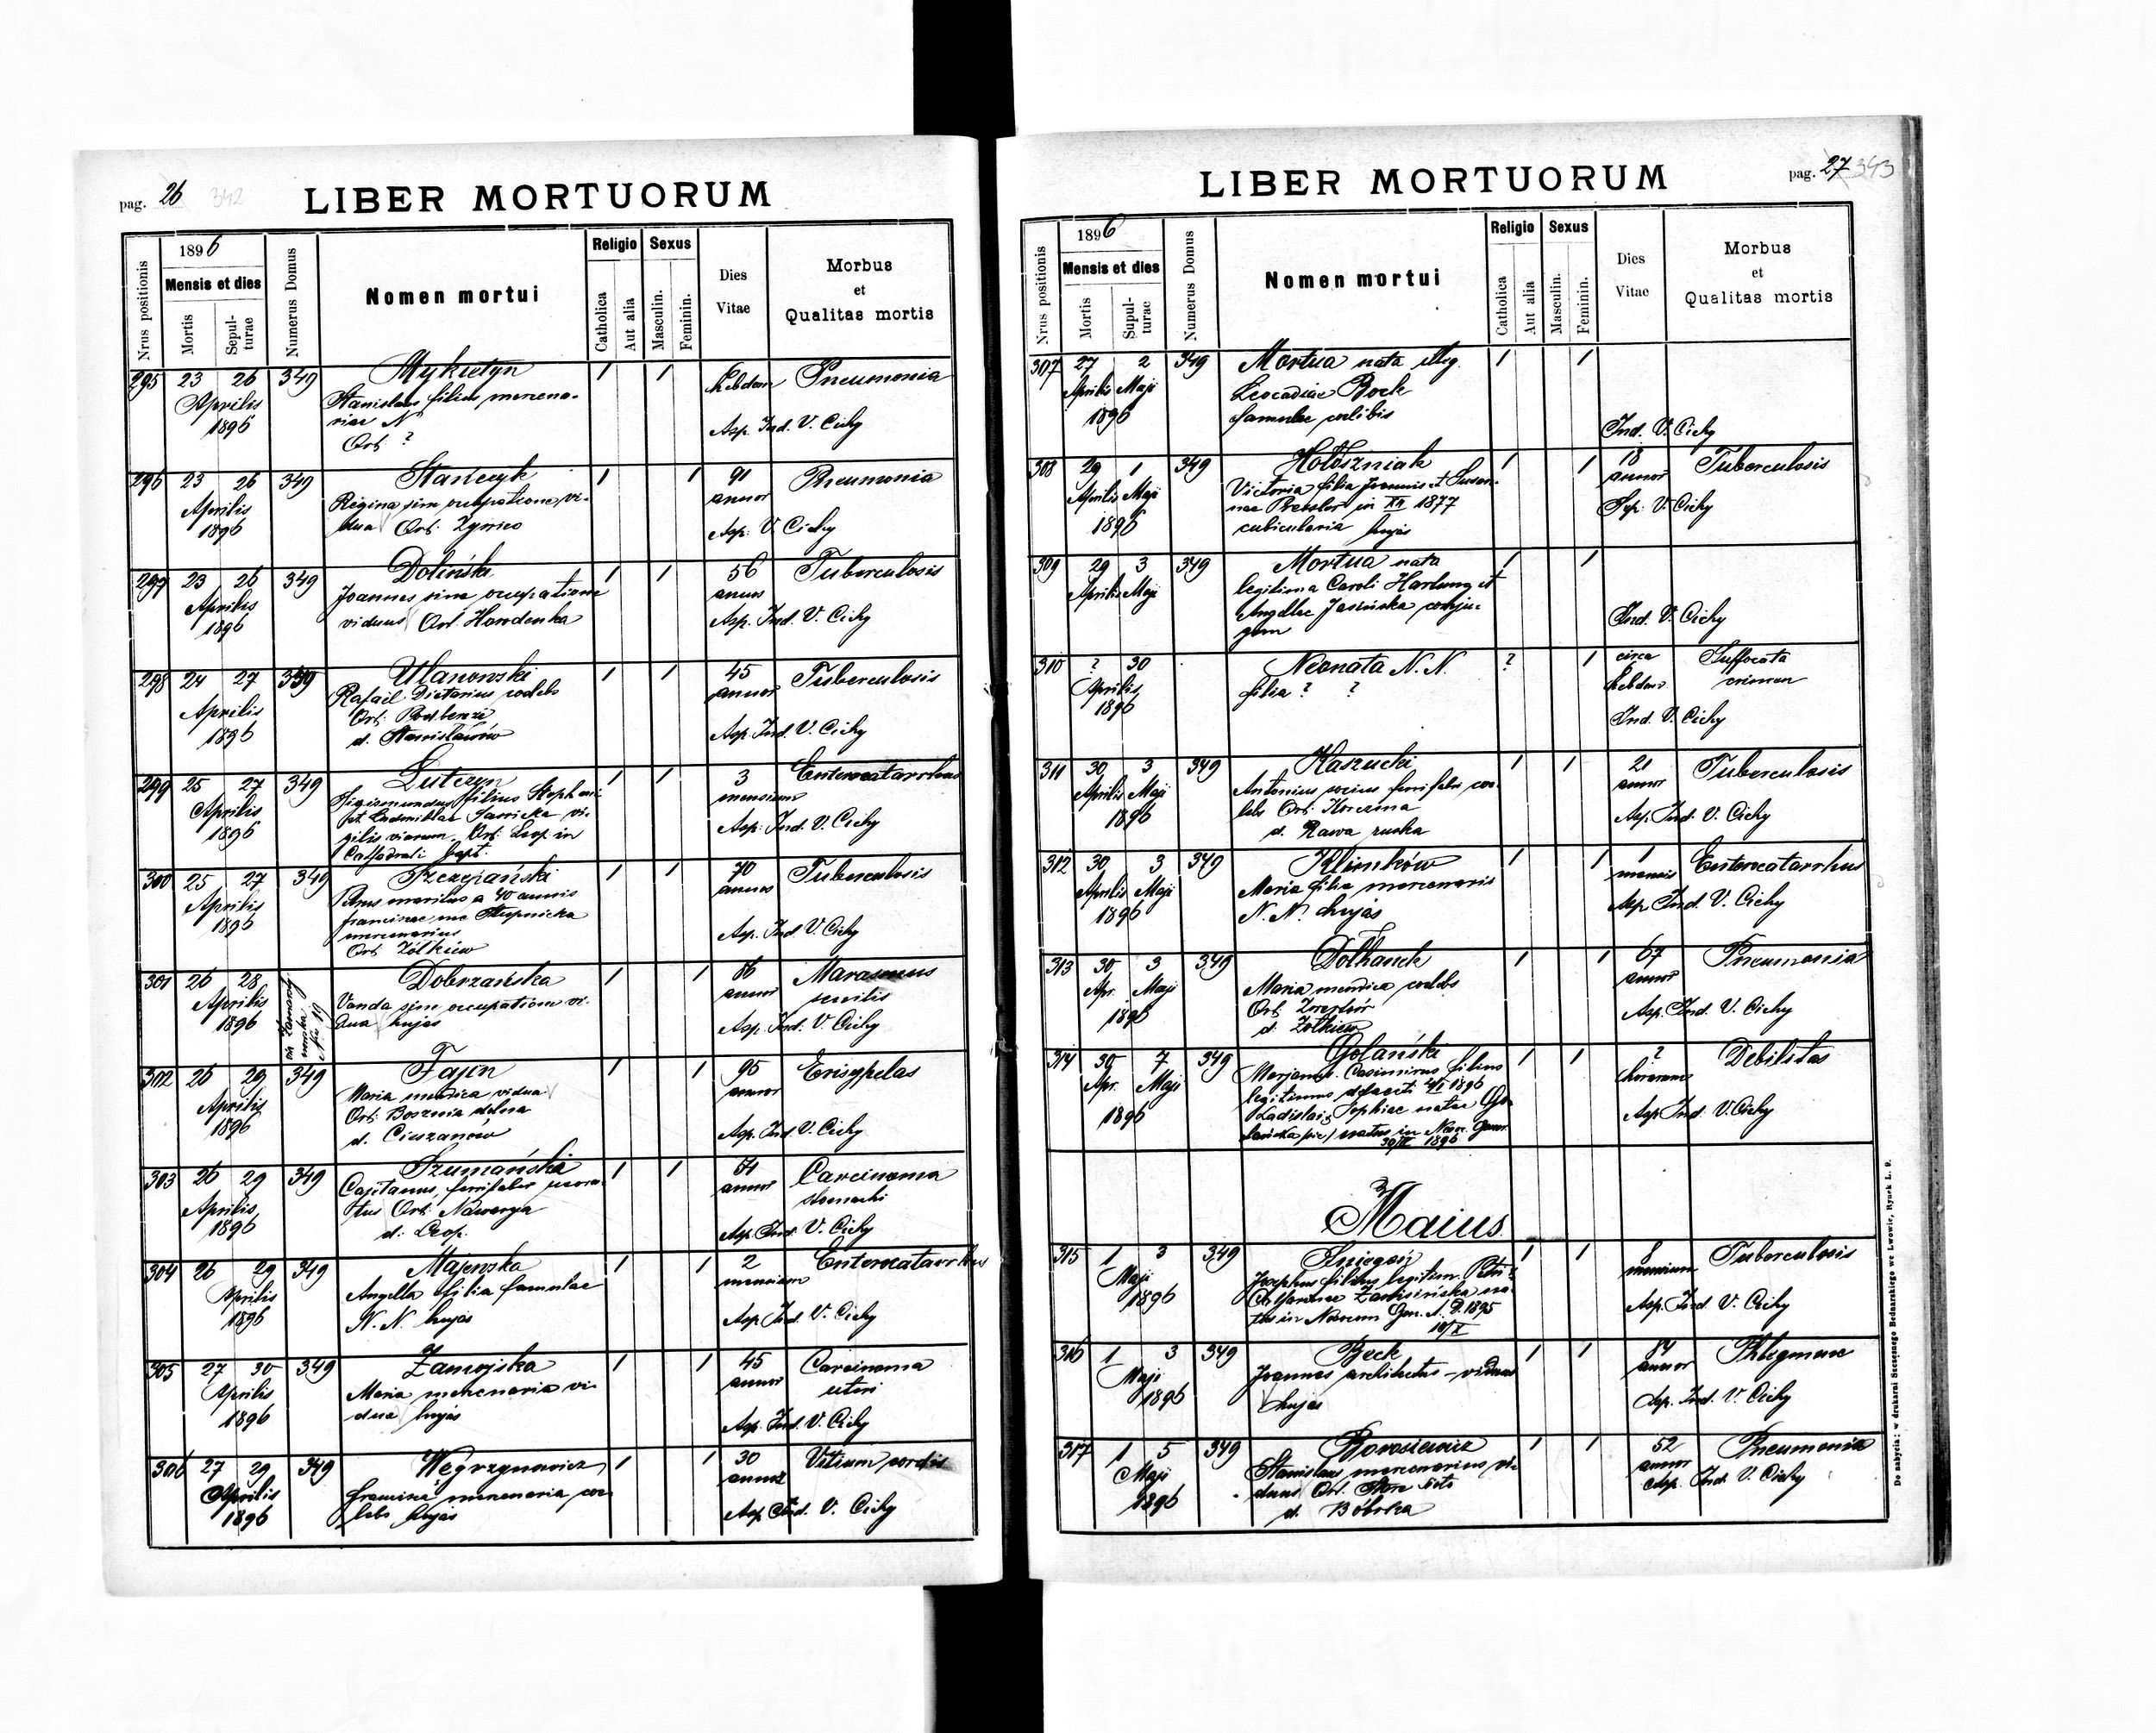 pag. 26 342
LIBER MORTUORUM
Nrus positionis
1896
Mensis et dies
Mortis
Sepul-
turae
Numerus Domus
Nomen mortui
Religio
Catholica
Aut alia
Sexus
Masculin.
Feminin.
Dies
Vitae
Morbus
et
Qualitas mortis
295 23 26 349 Mykietyn 1 1 hebdom Pneumonia
Aprilis Stanislaus filius mercena-
1896 riae N Asp. Ind. V. Cichy
Ort ?
296 23 26 349 Stańczyk 1 1 91 Pneumonia
Aprilis Regina sine occupatione, vi- annor
1896 dua Ort: Asp: V. Cichy
297 23 26 349 Doliński 1 1 56 Tuberculosis
Aprilis Joannes sine occupatione annos
1896 viduus Ort. Horodenka Asp. Ind. V. Cichy
298 24 27 349 Ulanowski 1 1 45 Tuberculosis
Aprilis Rafael Dietarius coelebs annor
1896 Ort:
d. Stanisławów Asp Ind. V. Cichy
299 25 27 349 1 1 3 Enterocatarrhus
Aprilis Sigismundus filius Stephani mensium
1896 et Ludmillae vi-
gilis viarum. Ort: Leop. in Asp: Ind. V. Cichy
Cathedrali bapt.
300 25 27 349 Szczepański 1 1 70 Tuberculosis
Aprilis Petrus maritus a 40 annis annos
1896 Franciscae nae Stupnicka
mercenarius Asp. Ind V. Cichy
Ort Żółkiew
301 26 28 Dobrzańska 1 1 86 Marasmus
Aprilis Vanda sine occupatione vi- annor senilis
1896 dua hujas Asp. Ind. V. Cichy
Nr 19
302 26 29 349 Fajen 1 1 95 Erisypelas
Aprilis Maria mendica vidua annor
1896 Ort:
d. Cieszanów Asp. Ind V. Cichy
303 26 29 349 Szumański 1 1 61 Carcinoma
Aprilis Cajetanus, ferrifaber uxora- annor stomachi
1896 tus Ort. Nawarya
d: Leop. Asp. Ind. V. Cichy
304 26 29 349 Majewska 1 1 2 Enterocatarrhus
Aprilis Angella filia famulae mensium
1896 N. N. hujas Asp Ind V. Cichy
305 27 30 349 Zamojska 1 1 45 Carcinoma
Aprilis Maria mercenaria vi- annor uteri
1896 dua hujas Asp. Ind. V. Cichy
306 27 29 349 Węgrzynowicz 1 1 30 Vitium cordis
Aprilis Francisca mercenaria coe- annor
1896 lebs hujas Asp Ind. V. Cichy
pag. 27 343
LIBER MORTUORUM
Nrus positionis
1896
Mensis et dies
Mortis
Supul-
turae
Numerus Domus
Nomen mortui
Religio
Catholica
Aut alia
Sexus
Masculin.
Feminin.
Dies
Vitae
Morbus
et
Qualitas mortis
307 27 2 349 Mortua nata illeg. 1 1
Aprilis Maji Leocadiae Bock
1896 famulae coelibis Ind. V. Cichy
308 29 1 349 Hołoszniak 1 1 18 Tuberculosis
Aprilis Maji Victoria filia Joannis et Susan- annor
1896 nae in XII 1877 V. Cichy
cubicularia hujas
309 29 3 349 Mortua nata 1 1
Aprilis Maji legitima Caroli Hartung et
Angellae Jasińska conju- Ind. V. Cichy
gum
310 ? 30 Neonata N. N. ? 1 circa Suffocata
Aprilis filia ? ? 6 crimen
1896 hebdom.
Ind. V. Cichy
311 30 3 349 Kaszucki 1 1 21 Tuberculosis
Aprilis Maji Antonius socius ferrifabri coe- annor
1896 lebs Ort: Korczma
d. Rawa ruska Asp. Ind. V. Cichy
312 30 3 349 Klimków 1 1 1 Enterocatarrhus
Aprilis Maji Maria filia mercenaris mensis
1896 N. N. hujas Asp Ind. V. Cichy
313 30 3 349 1 1 67 Pneumonia
Apr. Maji Maria mendica coelebs annor
1896 Ort.
d. Żółkiew Asp. Ind. V. Cichy
314 30 7 349 Golański 1 1 ? Debilitas
Apr. Maji Marjan Casimirus filius horarum
1896 legitimus defuncti 4/I 1896
Ladislai & Sophiae natae Go- Asp Ind V. Cichy
lańska (sic) natus in Noso. Gener.
30/IV 1896
Maius
315 1 3 349 1 1 8 Tuberculosis
Maji Josephus filius legitim. Petri & mensium
1896 Catharinae na-
tus in Nosocom Gen. A. D. 1895 Asp. Ind V. Cichy
10/X
316 1 3 349 Beck 1 1 84 Phlegmone
Maji Joannes architectus - viduus annor
1896 hujas Asp. Ind. V. Cichy
317 1 5 349 Borosiewicz 1 1 52 Pneumonia
Maji Stanislaus mercenarius vi- annor
1896 duus Ort. Stare Sioło Asp. Ind. V. Cichy
d. Bóbrka
Do nabycia: w drukarni Szczęsnego Bednarskiego we Lwowie, Rynek L. 9.